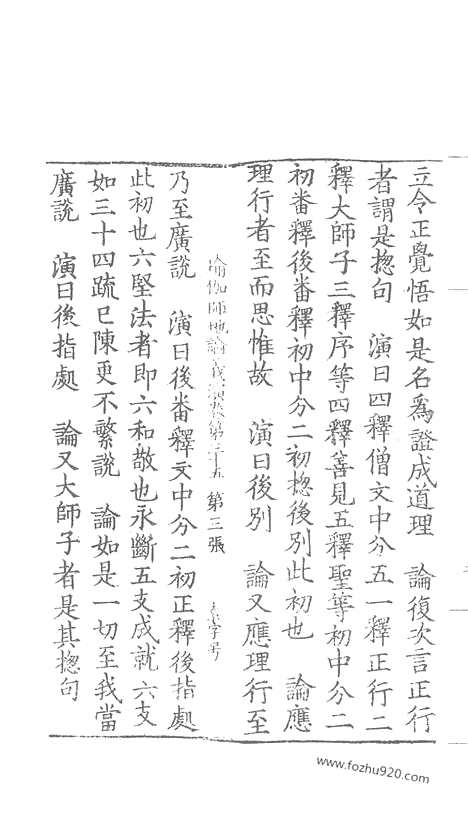 立令正覺悟如是名為證成道理　論復次言正行
者謂是揔句　演曰四釋僧文中分五一釋正行二
釋大師子三釋序等四釋善見五釋聖等初中分二
初番釋後番釋初中分二初揔後別此初也　論應
理行者至而思惟故　演曰後別　論又應理行至
瑜伽師地論義演卷第三十五　第三張
乃至廣說　演曰後番釋文中分二初正釋後指處
此初也六堅法者即六和敬也永斷五支成就六支
如三十四疏已陳更不繁說　論如是一切至我當
廣說　演曰後指處　論又大師子者是其揔句
www.fozhu920.com